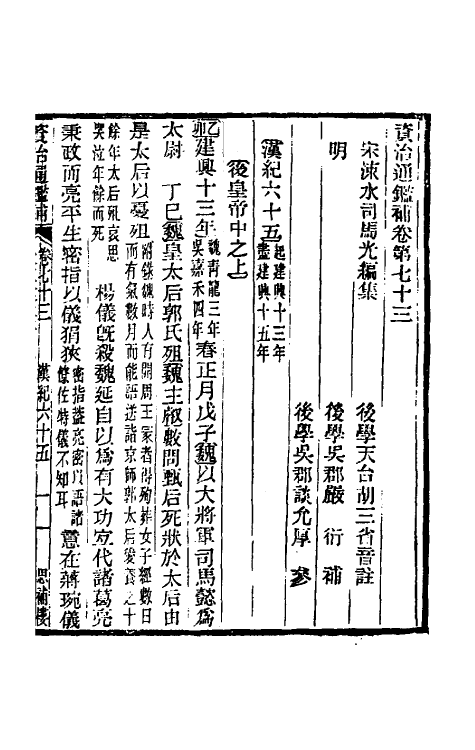 資治通鑑補卷第七十三
宋涑水司馬光編集
後學天台胡三省音註
明
後學吳郡嚴衍補
後學吳郡談允厚參
漢紀六十五
起建興十三年
盡建興十五年
後皇帝中之上
乙卯建興十三年
魏青龍三年
吳嘉禾四年
春正月戊子魏以大將軍司馬懿爲
太尉 丁巳魏皇太后郭氏殂魏主叡數問甄后死狀於太后由
是太后以憂殂
附錄魏時人有開周王冢者得殉葬女子經數日
而有氣數月而能語送諸京師郭太后愛養之十
餘年太后殂哀思
哭泣年餘而死
楊儀旣殺魏延自以爲有大功宜代諸葛亮
秉政而亮平生密指以儀狷狹
密指蓋亮密以語諸
僚佐特儀不知耳
意在蔣琬儀
資治通鑑補
卷七十三
漢紀六十五
一
思補樓